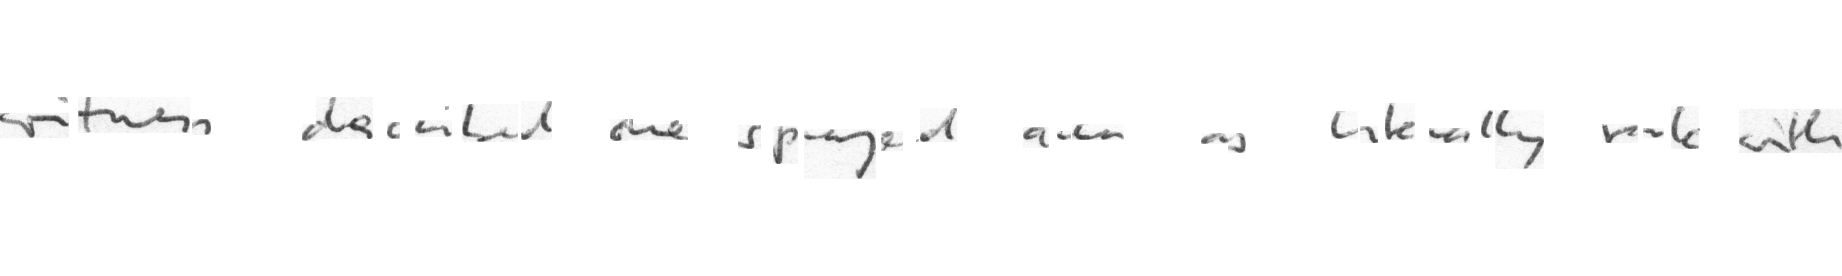 witness described one sprayed area as literally rank with